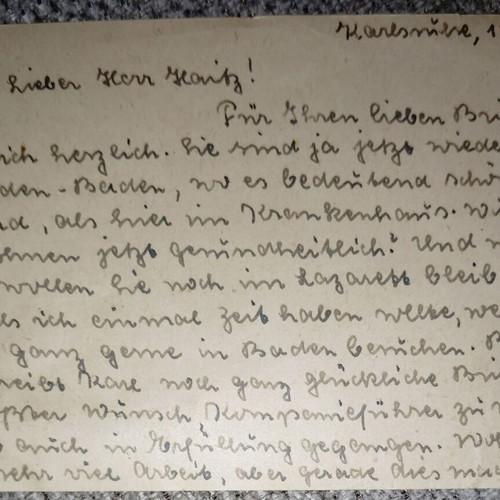 Karlsruhe, 1
Lieber Herr Haitz!
Für Ihren lieben Bri
ich herzlich. Sie sind ja jetzt wiede
den-Baden, wo es bedeutend schö
nd, als hier im Krankenhaus. Wi
Ihnen jetzt gesundheitlich? Und
wollen Sie noch im Lazarett bleib
ls ich einmal Zeit haben sollte, we
ganz gerne in Baden besuchen.
reibt Karl noch ganz glückliche Bri
ßter Wunsch Kompanieführer zu
auch in Erfüllung gegangen.
sehr viel Arbeit, aber gerade dies ma